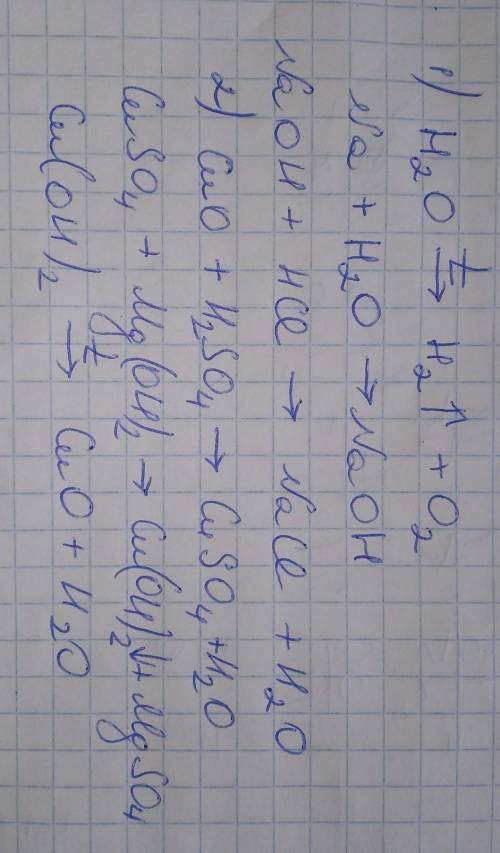 1) H₂O →ᵗ H₂↑ + O₂
Na + H₂O → NaOH
NaOH + HCl → NaCl + H₂O
2) CuO + H₂SO₄ → CuSO₄ + H₂O
CuSO₄ + Mg(OH)₂ → Cu(OH)₂↓ + MgSO₄
Cu(OH)₂ →ᵗ CuO + H₂O